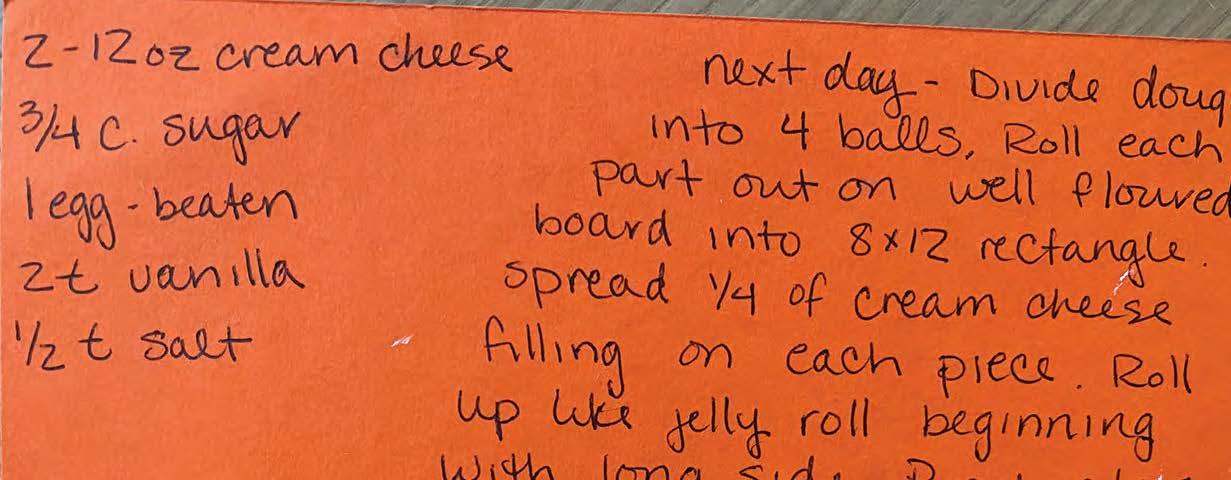 2-12oz cream cheese
3/4 c. sugar
1 egg - beaten
2t vanilla
1/2 t salt
next day - Divide doug
into 4 balls. Roll each
part out on well floured
board into 8x12 rectangle.
spread 1/4 of cream cheese
filling on each piece. Roll
up like jelly roll beginning
with long side.